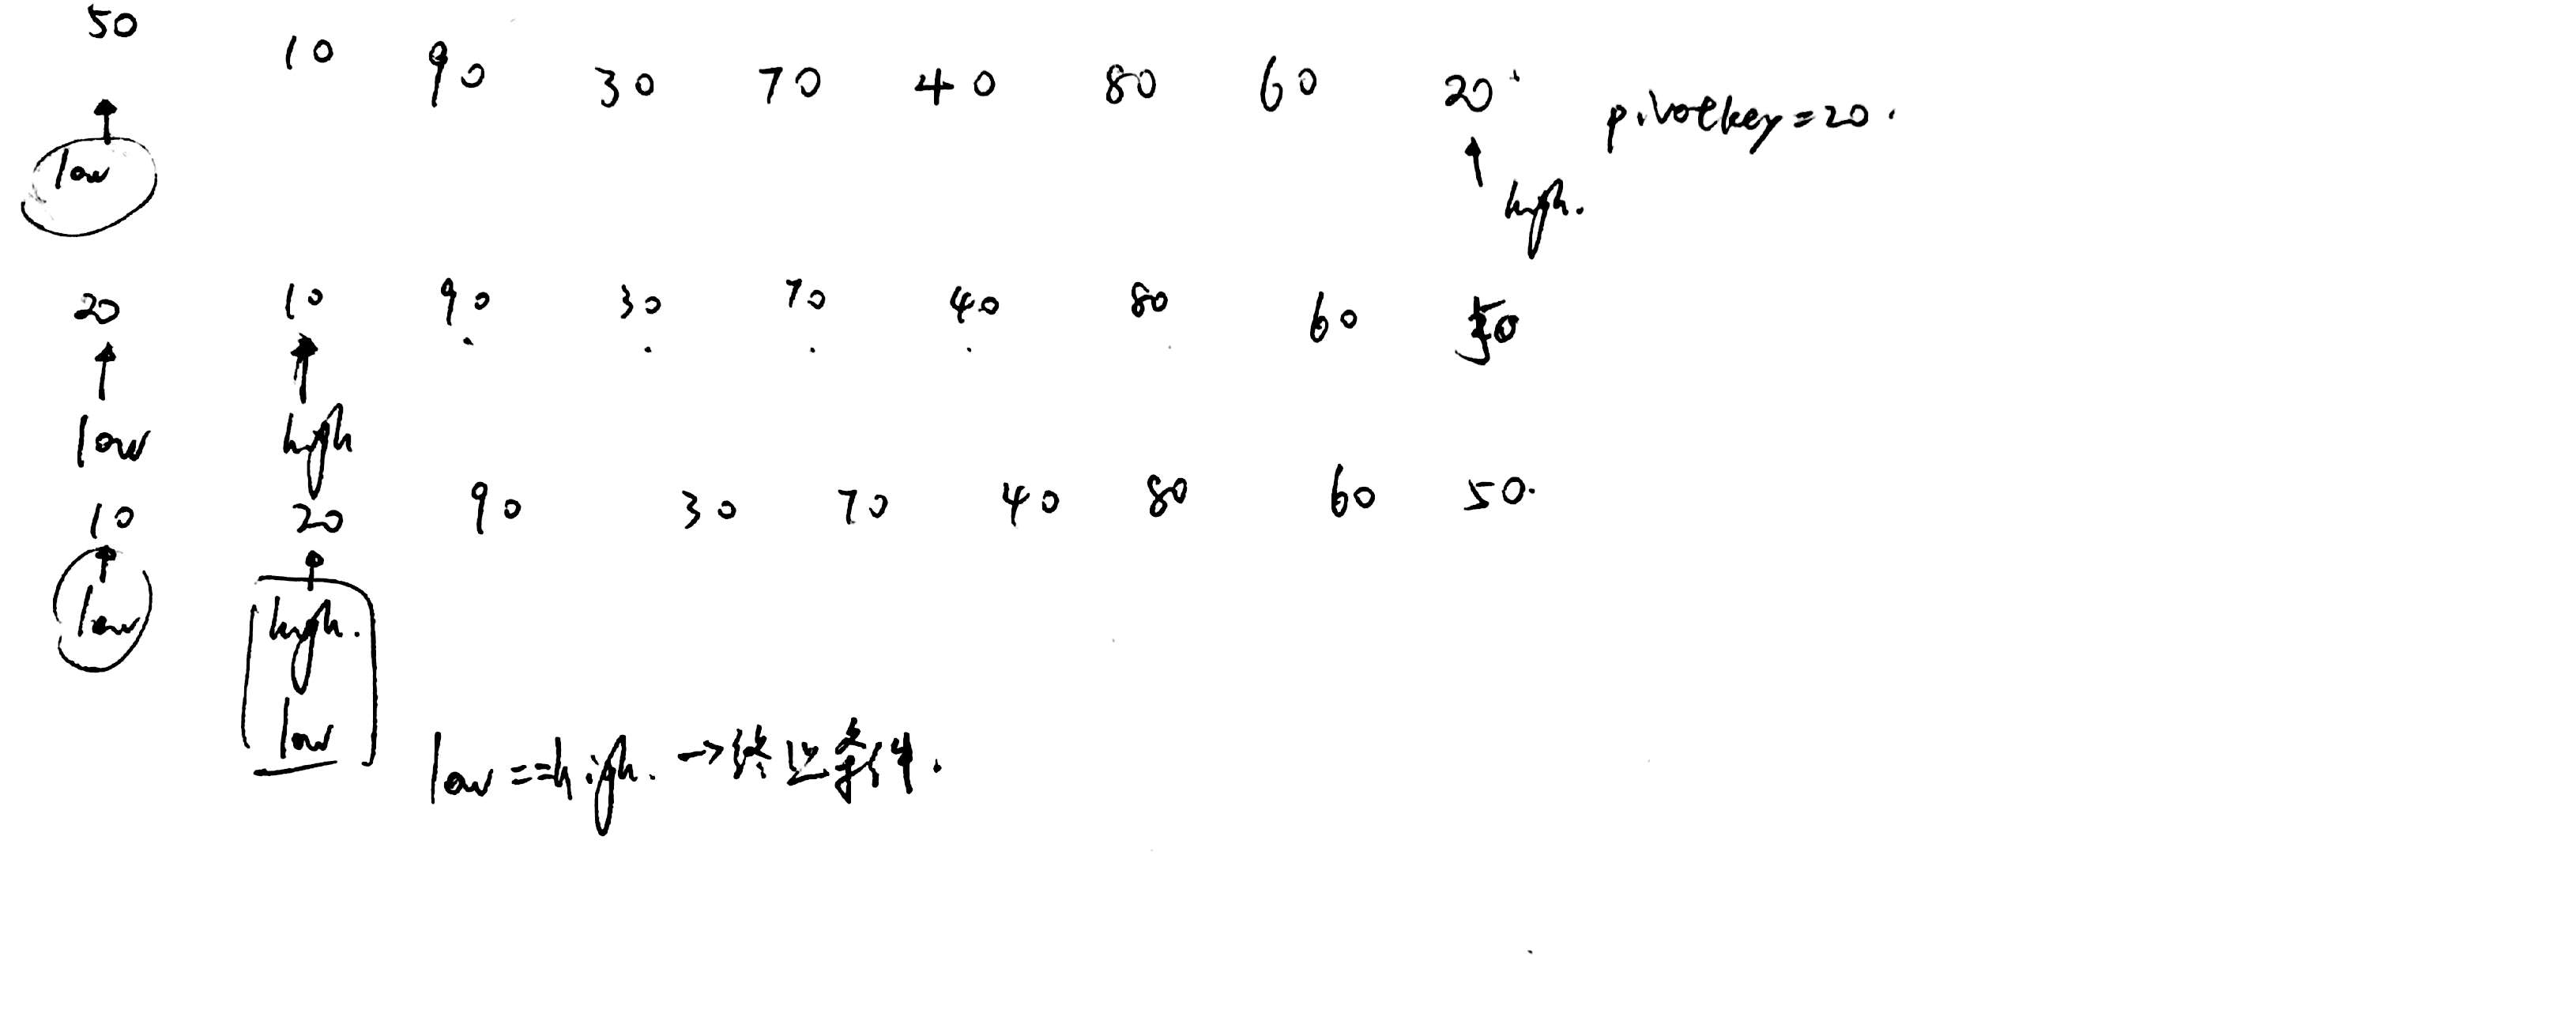 50 10 90 30 70 40 80 60 20 pivotkey=20.
low high.
20 10 90 30 70 40 80 60 50
low high
10 20 90 30 70 40 80 60 50.
low high.
low
low==high. →终止条件.